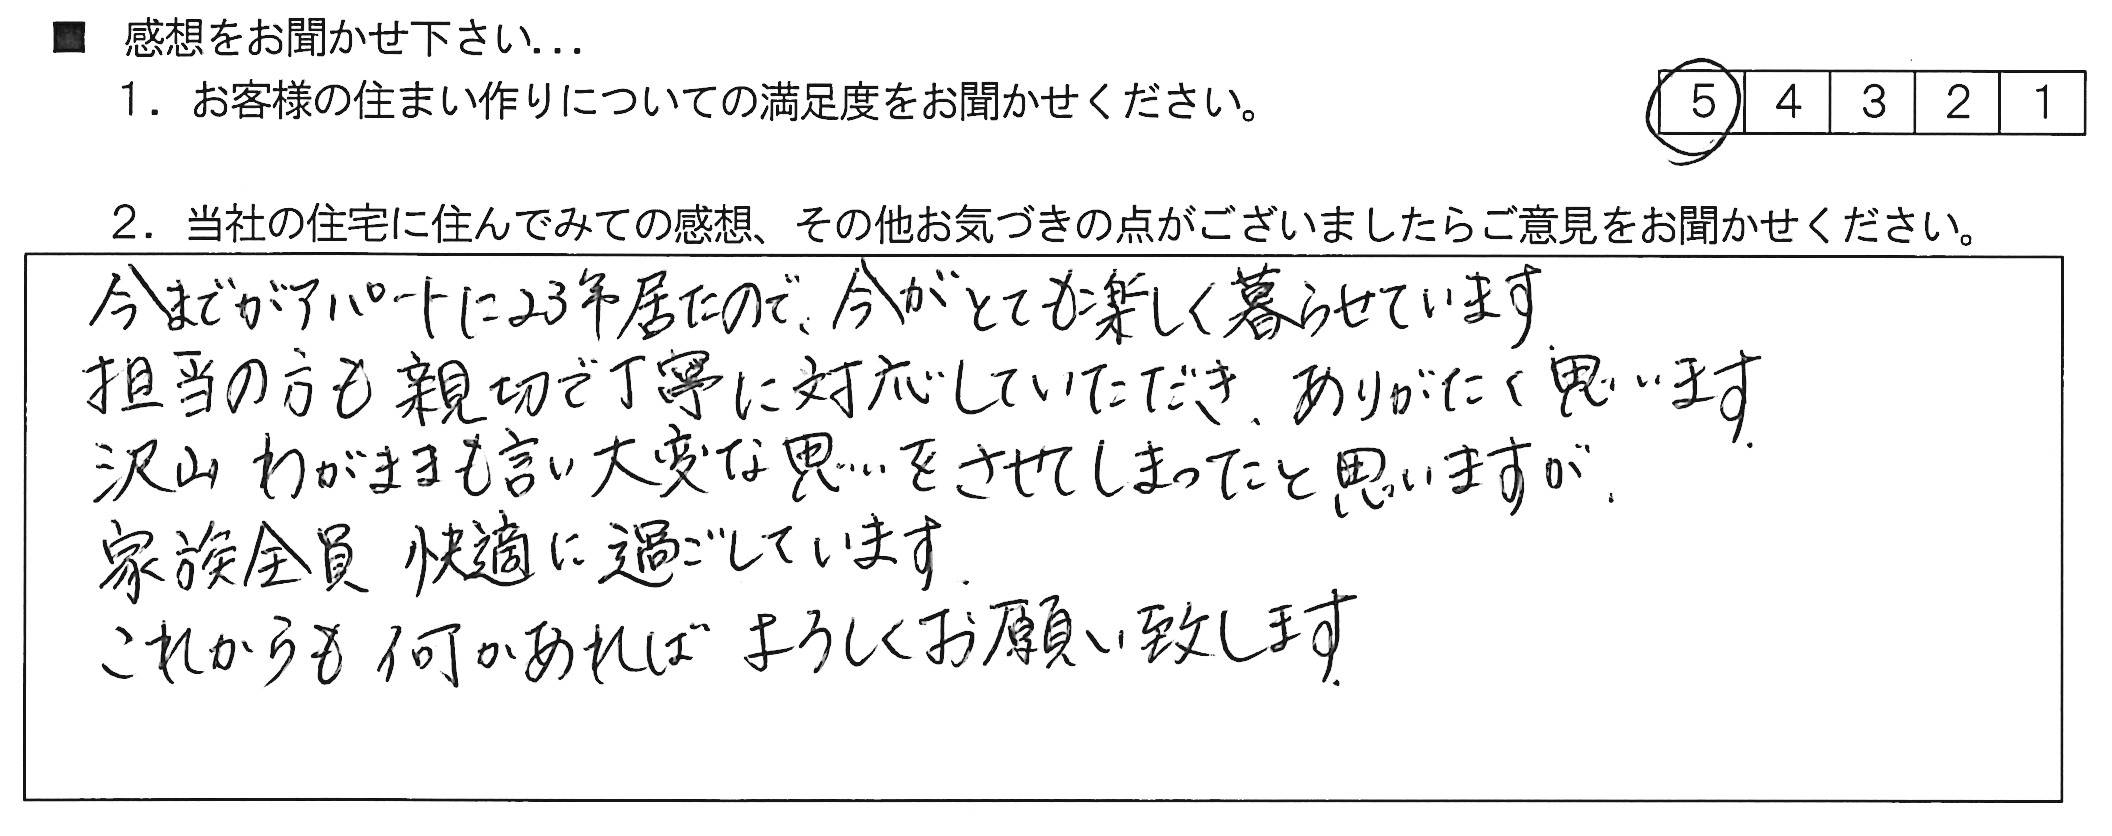 ■ 感想をお聞かせ下さい...
1. お客様の住まい作りについての満足度をお聞かせください。
5 4 3 2 1
2. 当社の住宅に住んでみての感想、その他お気づきの点がございましたらご意見をお聞かせください。
今までがアパートに23年居たので、今がとても楽しく暮らせています.
担当の方も親切で丁寧に対応していただき、ありがたく思います.
沢山わがままも言い大変な思いをさせてしまったと思いますが、
家族全員 快適に過ごしています.
これからも何かあれば よろしくお願い致します.